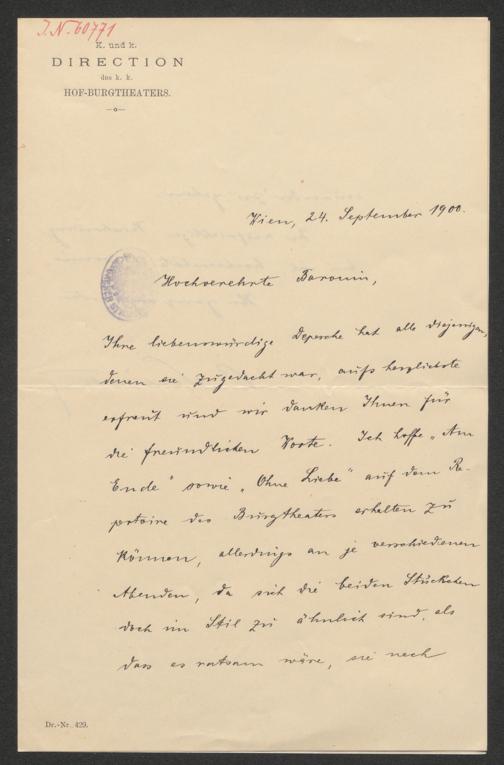 J.N. 60771
K. und k.
DIRECTION
des k. k.
HOF-BURGTHEATERS.
Wien, 24. September 1900.
Hochverehrte Baronin,
Ihre liebenswürdige Depesche hat alle diejenigen,
denen sie zugedacht war, aufs herzlichste
erfreut und wir danken Ihnen für
die freundlichen Worte. Ich hoffe „Am
Ende" sowie „Ohne Liebe" auf dem Re-
pertoire des Burgtheaters erhalten zu
können, allerdings an je verschiedenen
Abenden, da sich die beiden Stückchen
doch im Stil zu ähnlich sind, als
dass es ratsam wäre, sie nach
Dr.-Nr. 429.